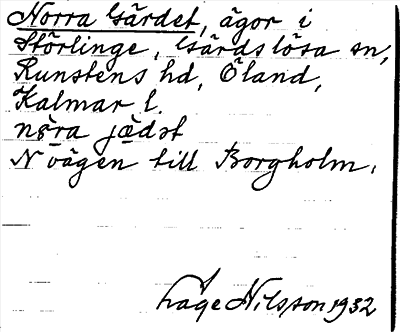 Norra Gärdet, ägor i
Störlinge, Gärdslösa sn,
Runstens hd, Öland,
Kalmar l.
N vägen till Borgholm.
Åke Nilsson 1932